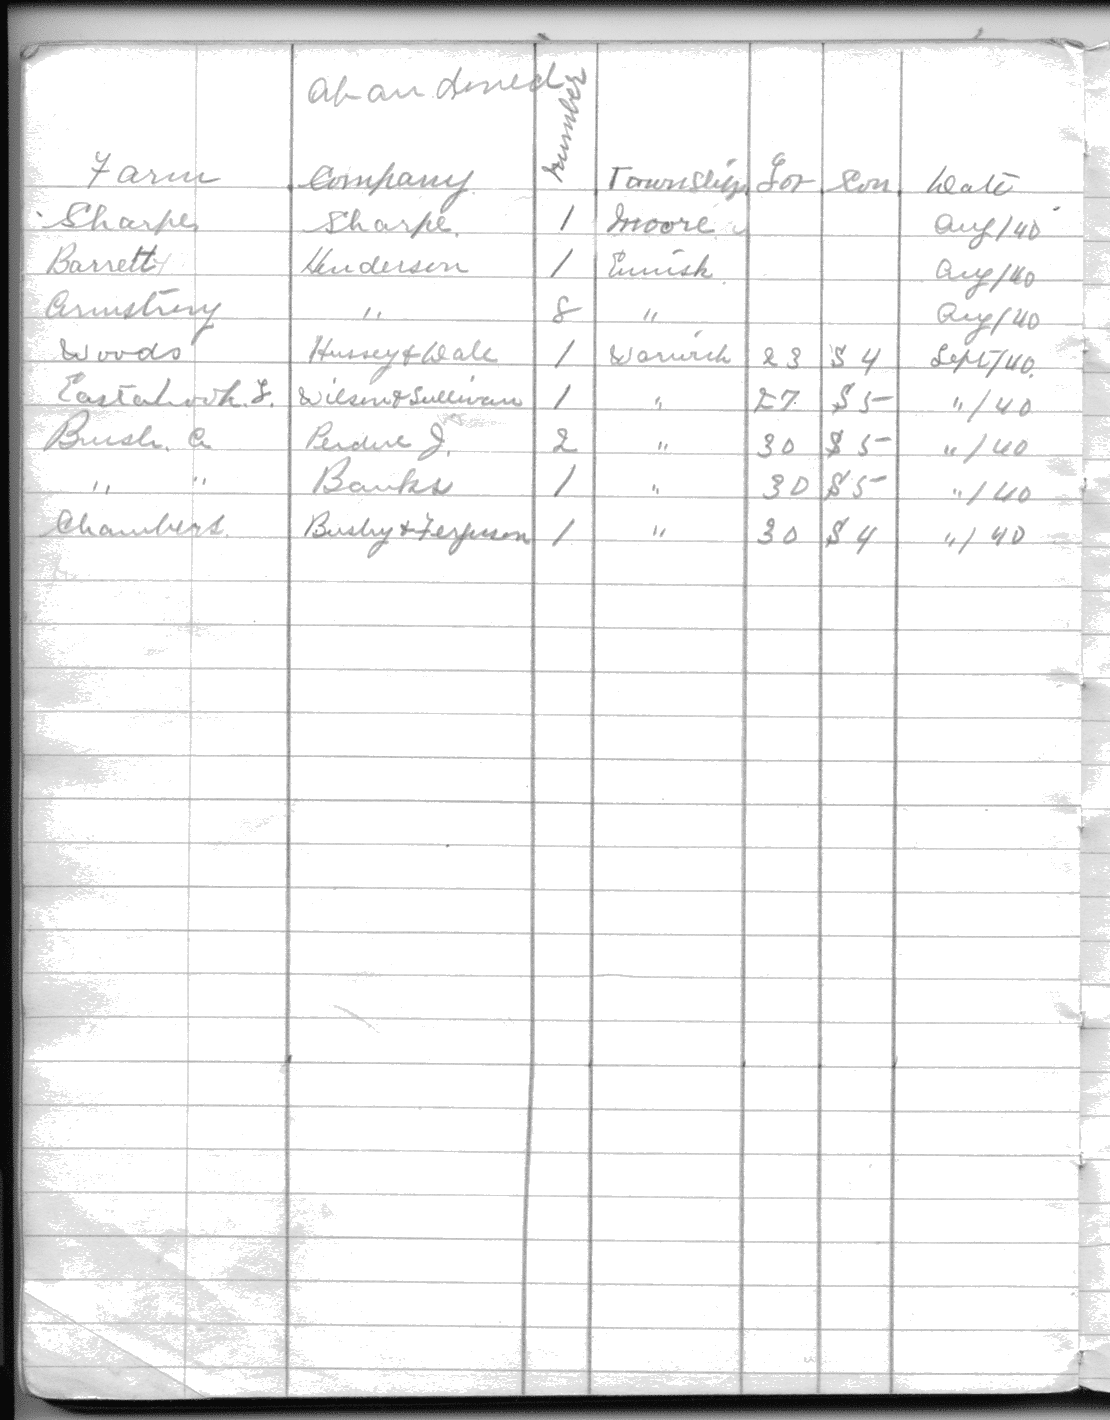 abandoned
Farm Company number Township Lot Con. Date
Sharpe Sharpe. 1 Moore Aug/40
Barrett Henderson 1 Ennisk Aug/40
Armstrong " 8 " Aug/40
Woods Hussey & Dale 1 Warwick 23 S 4 Sept/40.
Eastabrook. L. Wilson & Sullivan 1 " 27. S 5 "/40
Brush. C Perdue J. 2 " 30 S 5 "/40
" " Banks 1 " 30 S 5 "/40
Chambers. Busby & Ferguson 1 " 30 S 4 "/40